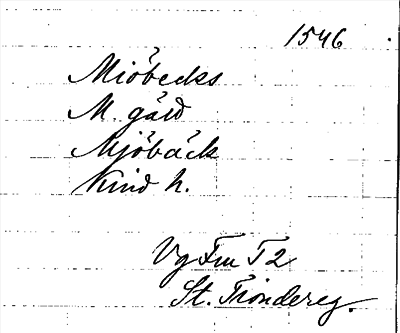 1546
Miöbecks
M. gård
Mjöbäck
Kind h.
Vg Fru T 2
St. Tiondereg.